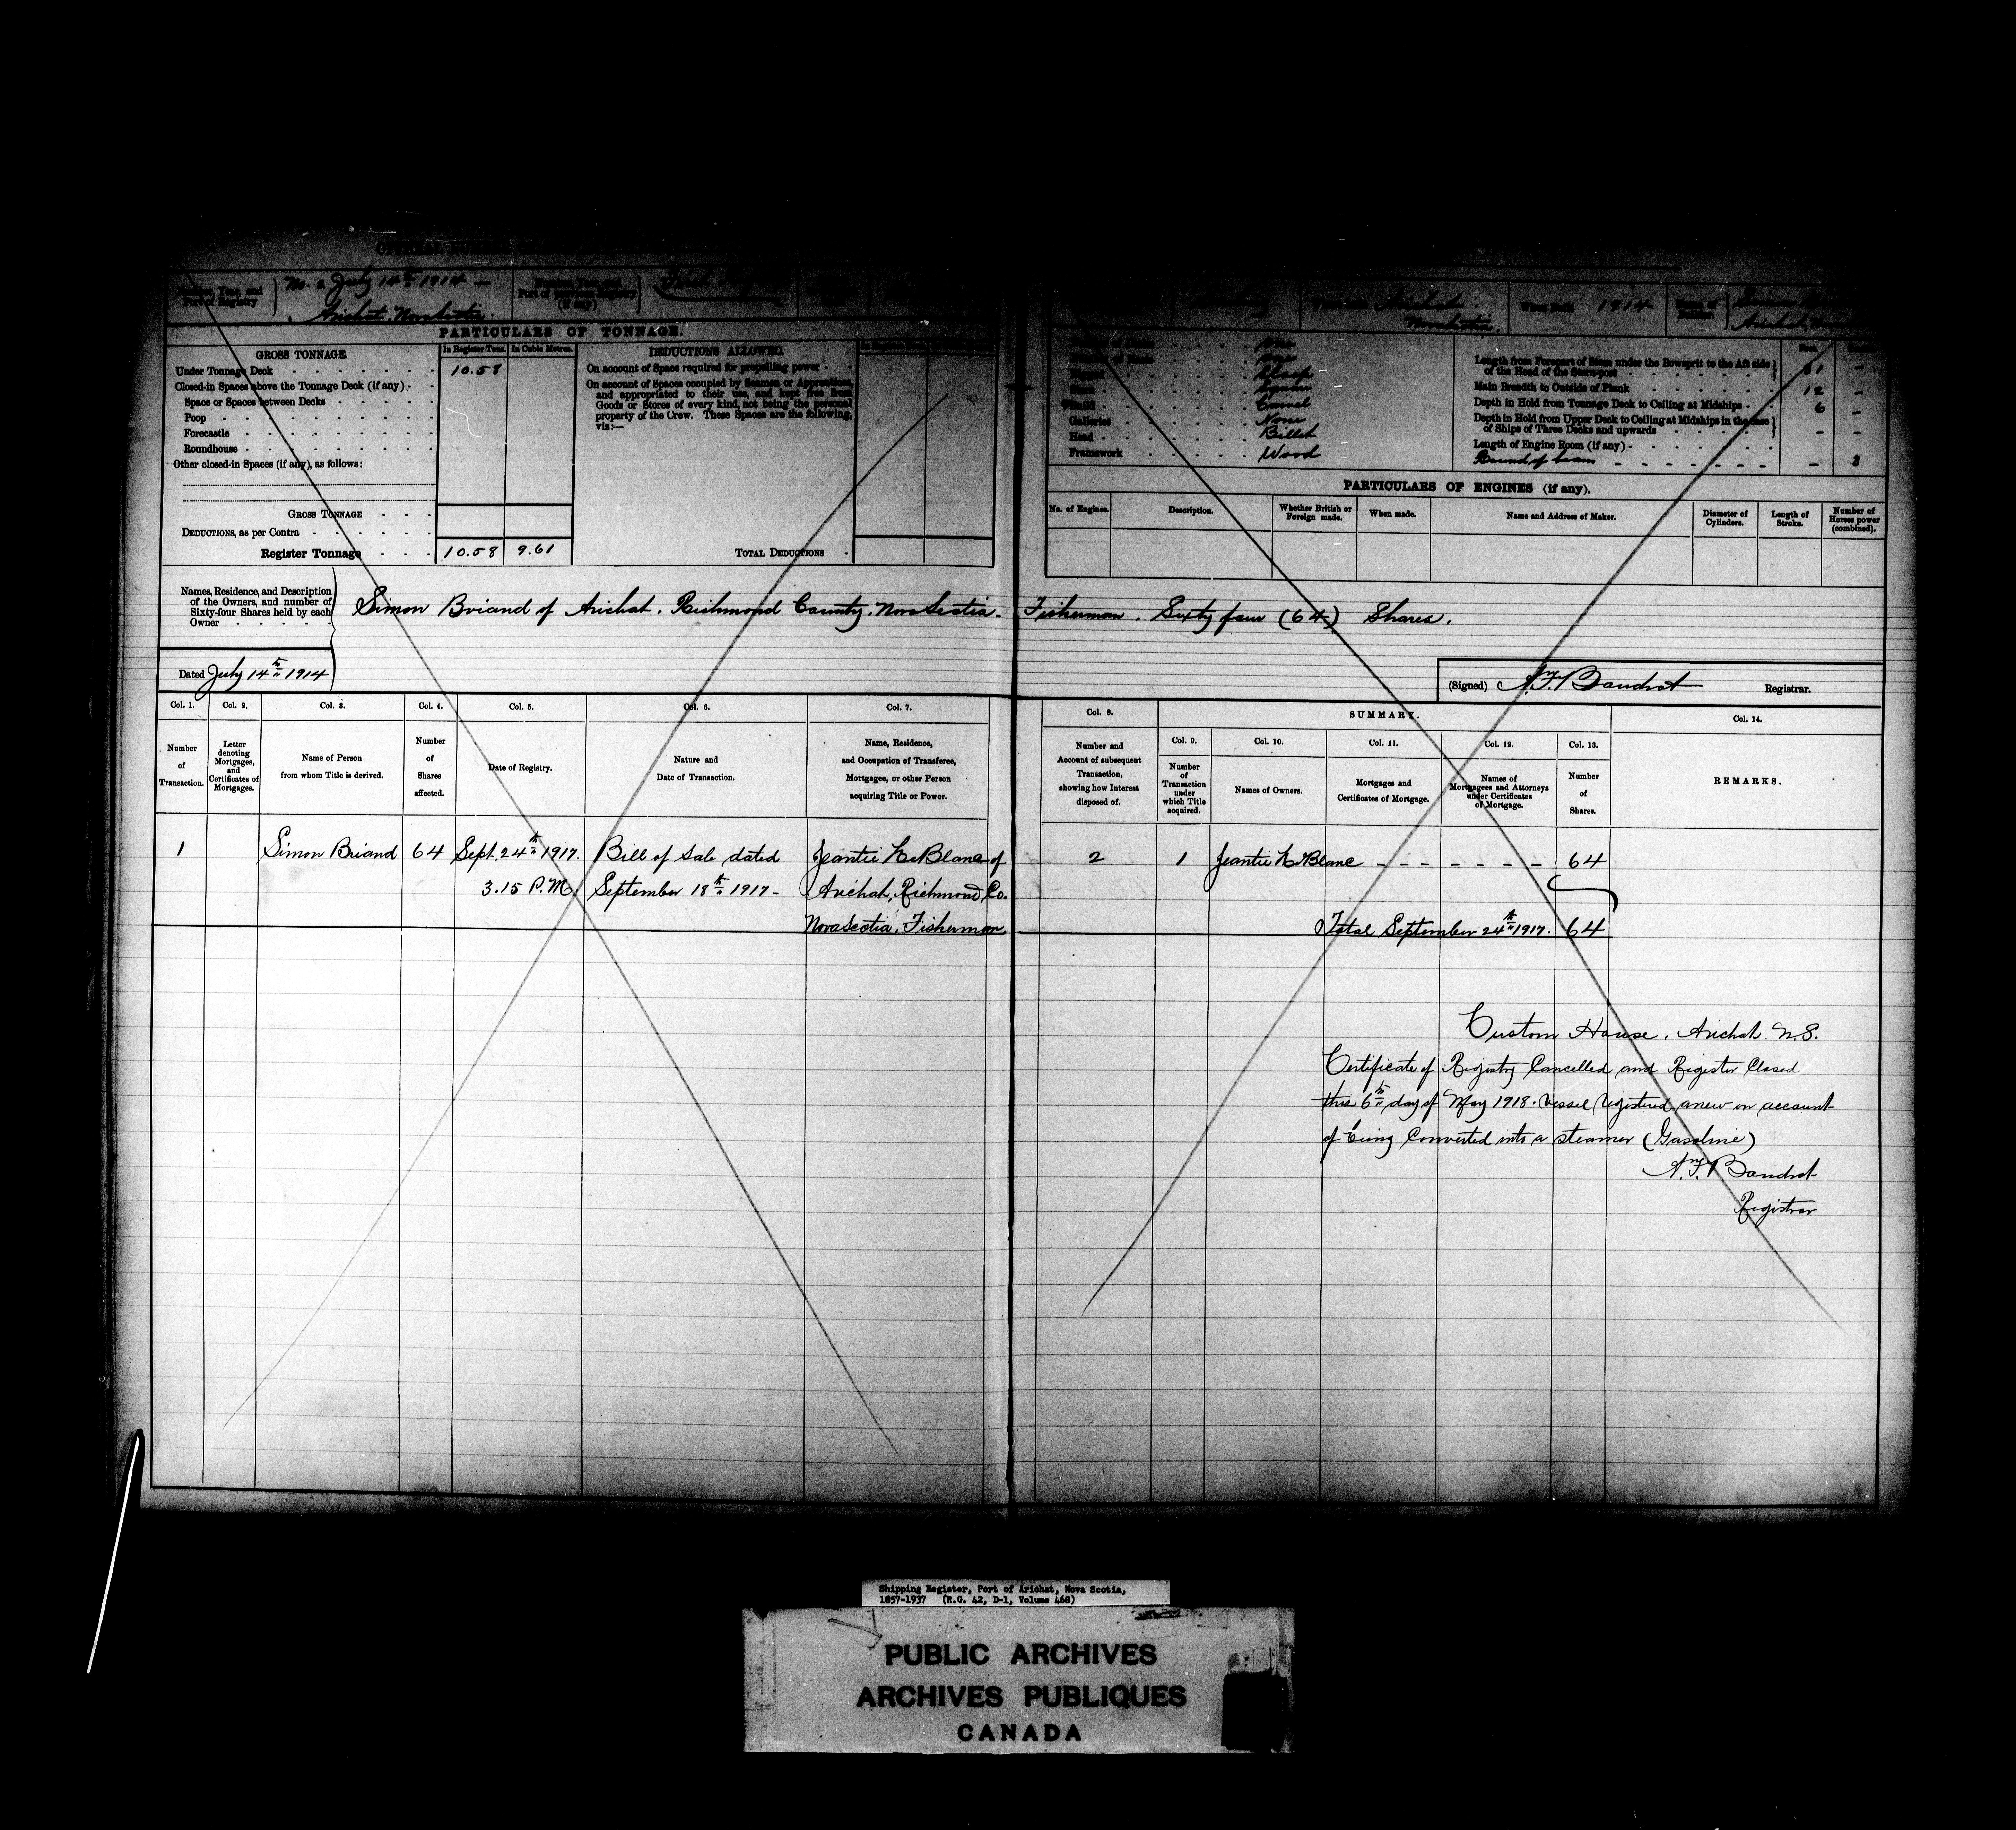 Number, Year, and Port of Registry
No. 2 July 14th 1914 —
Arichat, Nova Scotia.
Number, Year, and Port of previous Registry (if any)
When Built 1914
Arichat
Nova Scotia
PARTICULARS OF TONNAGE.
GROSS TONNAGE.
In Register Tons.
In Cubic Metres.
Under Tonnage Deck 10.58
Closed-in Spaces above the Tonnage Deck (if any)
Space or Spaces between Decks
Poop
Forecastle
Roundhouse
Other closed-in Spaces (if any), as follows:
GROSS TONNAGE
DEDUCTIONS, as per Contra
Register Tonnage 10.58 9.61
DEDUCTIONS ALLOWED.
On account of Space required for propelling power
On account of Spaces occupied by Seamen or Apprentices,
and appropriated to their use, and kept free from
Goods or Stores of every kind, not being the personal
property of the Crew. These Spaces are the following,
viz:—
TOTAL DEDUCTIONS
One
One
Sloop
Square
Build Carvel
Galleries None
Head Billet
Framework Wood
Feet
Length from Forepart of Stem under the Bowsprit to the Aft side
of the Head of the Stern-post
Main Breadth to Outside of Plank 12 -
Depth in Hold from Tonnage Deck to Ceiling at Midships 6 -
Depth in Hold from Upper Deck to Ceiling at Midships in the case
of Ships of Three Decks and upwards - -
Length of Engine Room (if any)
Round of beam - 3
PARTICULARS OF ENGINES (if any).
No. of Engines.
Description.
Whether British or Foreign made.
When made.
Name and Address of Maker.
Diameter of Cylinders.
Length of Stroke.
Number of Horses power (combined).
Names, Residence, and Description
of the Owners, and number of
Sixty-four Shares held by each
Owner
Simon Briand of Arichat, Richmond County, Nova Scotia - Fisherman. Sixty four (64) Shares.
Dated July 14th 1914
(Signed) Registrar.
Col. 1.
Number of Transaction.
Col. 2.
Letter denoting Mortgages, and Certificates of Mortgages.
Col. 3.
Name of Person from whom Title is derived.
Col. 4.
Number of Shares affected.
Col. 5.
Date of Registry.
Col. 6.
Nature and Date of Transaction.
Col. 7.
Name, Residence, and Occupation of Transferee, Mortgagee, or other Person acquiring Title or Power.
Col. 8.
Number and Account of subsequent Transaction, showing how Interest disposed of.
SUMMARY.
Col. 9.
Number of Transaction under which Title acquired.
Col. 10.
Names of Owners.
Col. 11.
Mortgages and Certificates of Mortgage.
Col. 12.
Names of Mortgagees and Attorneys under Certificates of Mortgage.
Col. 13.
Number of Shares.
Col. 14.
REMARKS.
1 Simon Briand 64 Sept. 24th 1917. Bill of Sale dated Jeantie LeBlanc of
3.15 P.M. September 18th 1917 - Arichat, Richmond Co.
Nova Scotia, Fisherman
2 1 Jeantie LeBlanc - - - - - - - 64
Total September 24th 1917. 64
Custom House, Arichat N.S.
Certificate of Registry Cancelled and Register Closed
this 6th day of May 1918. Vessel registered anew on account
of being Converted into a steamer (Gasoline)
Registrar
Shipping Register, Port of Arichat, Nova Scotia,
1857-1937 (R.G. 42, D-1, Volume 468)
PUBLIC ARCHIVES
ARCHIVES PUBLIQUES
CANADA